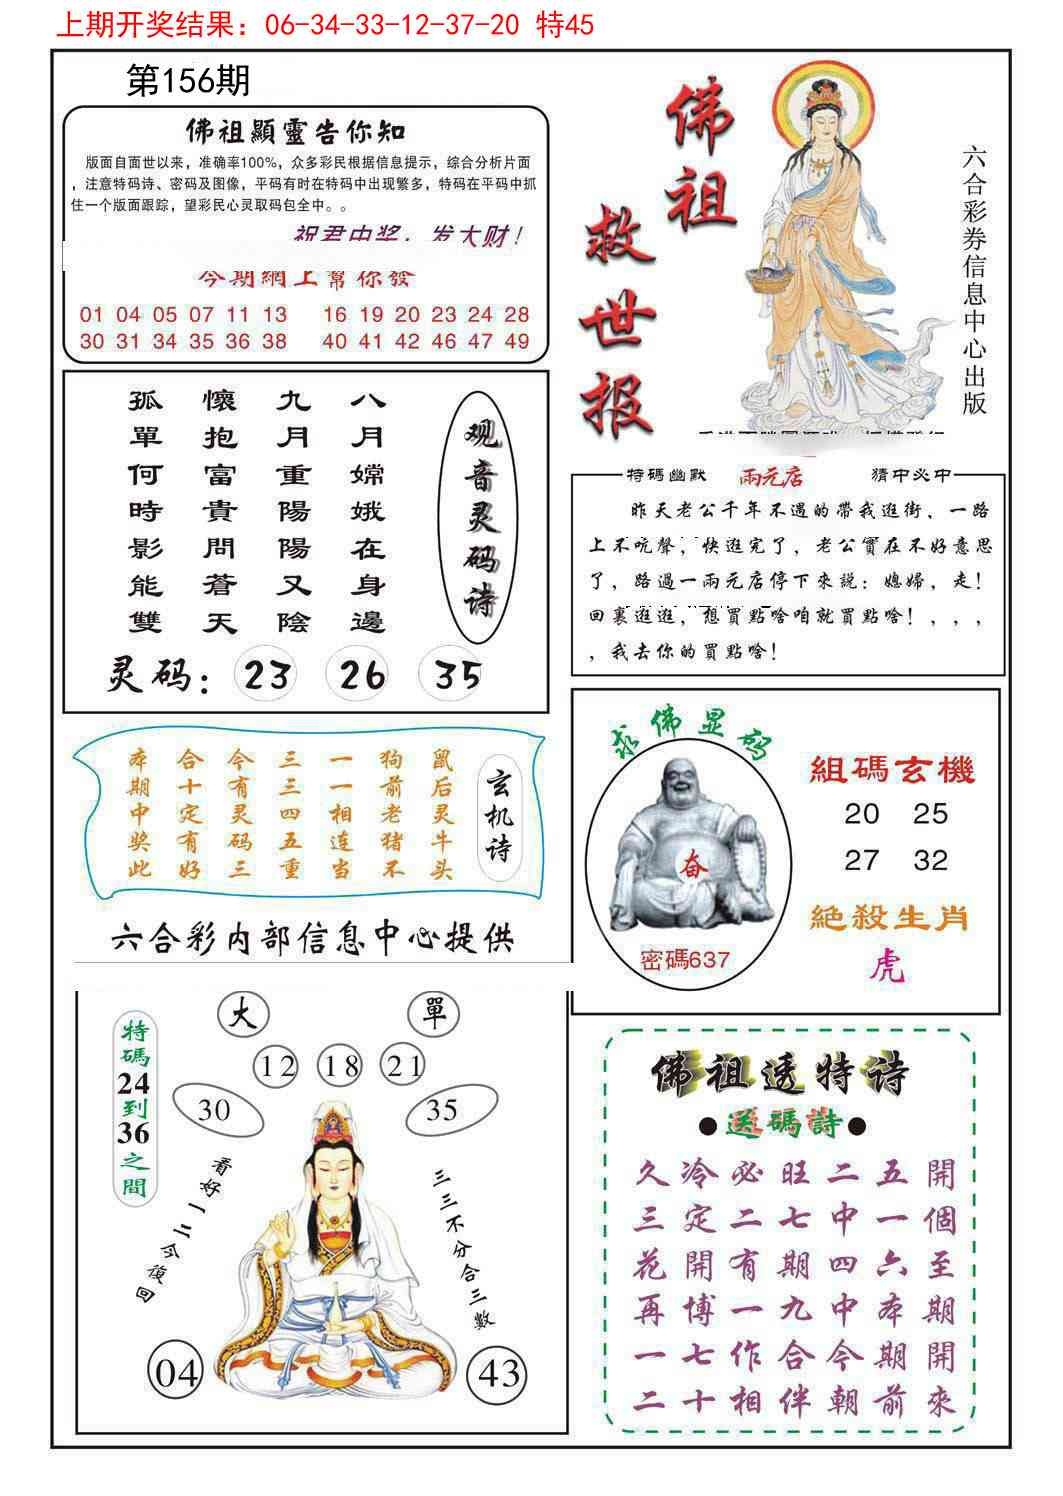 上期开奖结果：06-34-33-12-37-20 特45
第156期
佛祖顯靈告你知
版面自面世以来，准确率100%，众多彩民根据信息提示，综合分析片面
，注意特码诗、密码及图像，平码有时在特码中出现繁多，特码在平码中抓
住一个版面跟踪，望彩民心灵取码包全中。。
祝君中奖，发大财！
今期網上幫你發
01 04 05 07 11 13 16 19 20 23 24 28
30 31 34 35 36 38 40 41 42 46 47 49
佛祖
救世报
六合彩券信息中心出版
观音灵码诗
八月嫦娥在身邊
九月重陽陽又陰
懷抱富貴問蒼天
孤單何時影能雙
灵码：23 26 35
特碼幽默 兩元店 猜中必中
昨天老公千年不遇的帶我逛街、一路
上不吭聲，快逛完了，老公實在不好意思
了，路過一兩元店停下來説：媳婦，走！
回裏逛逛，想買點啥咱就買點啥！，，，
，我去你的買點啥！
玄机诗
鼠后灵牛头
狗前老猪不
一一相连当
三三四五重
今有灵码三
合十定有好
本期中奖此
六合彩内部信息中心提供
求佛显码
奋
密碼637
組碼玄機
20 25
27 32
絕殺生肖
虎
特碼24到36之間
大 單
12 18 21
30 35
看好一二今復回
三三不分合三數
04 43
佛祖透特诗
●送碼詩●
久冷必旺二五開
三定二七中一個
花開有期四六至
再博一九中本期
一七作合今期開
二十相伴朝前來